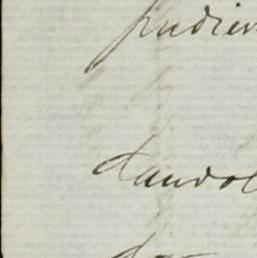 pudien
dandol